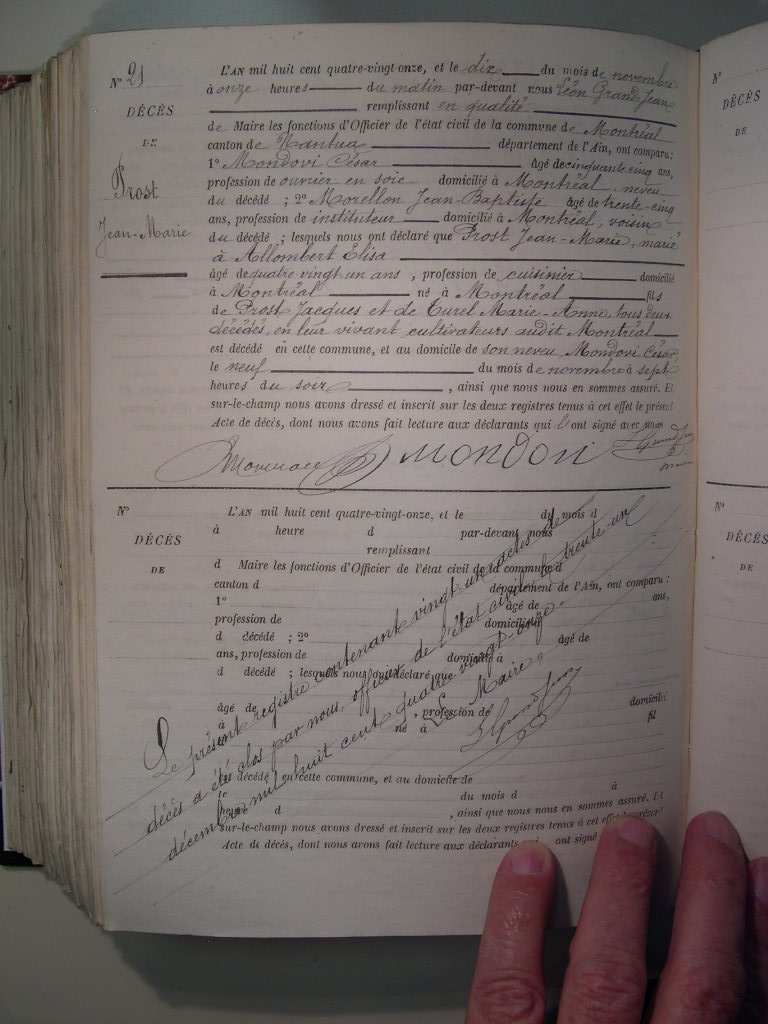 N° 21
DÉCÈS
DE
Prost
Jean-Marie
L'AN mil huit cent quatre-vingt-onze, et le dix du mois de novembre
à onze heures du matin par-devant nous Léon Grand Jean
remplissant en qualité
de Maire les fonctions d'Officier de l'état civil de la commune de Montréal
canton de Nantua département de l'Ain, ont comparu :
1° Mondovi César âgé de cinquante cinq ans,
profession de ouvrier en soie domicilié à Montréal, neveu
du décédé ; 2° Morellon Jean-Baptiste âgé de trente-cinq
ans, profession de instituteur domicilié à Montréal, voisin
du décédé ; lesquels nous ont déclaré que Prost Jean-Marie, marié
à Allombert Élisa
âgé de quatre vingt un ans, profession de cuisinier domicilié
à Montréal né à Montréal fils
de Prost Jacques et de Turel Marie-Anne, tous deux
décédés, en leur vivant cultivateurs audit Montréal
est décédé en cette commune, et au domicile de son neveu Mondovi César,
le neuf du mois de novembre à sept
heures du soir, ainsi que nous nous en sommes assuré. Et
sur-le-champ nous avons dressé et inscrit sur les deux registres tenus à cet effet le présent
Acte de décès, dont nous avons fait lecture aux déclarants qui l'ont signé avec nous
MONDOVI
N°
DÉCÈS
DE
L'AN mil huit cent quatre-vingt-onze, et le du mois d
à heure d par-devant nous
remplissant
d Maire les fonctions d'Officier de l'état civil de la commune d
canton d département de l'Ain, ont comparu :
1° âgé de ans,
profession de domicilié
d décédé ; 2° âgé de
ans, profession de domicilié à
d décédé ; lesquels nous ont déclaré que
âgé de , profession de domicilié
à né à fil
est décédé en cette commune, et au domicile de
le du mois d à
heure d , ainsi que nous nous en sommes assuré. Et
sur-le-champ nous avons dressé et inscrit sur les deux registres tenus à cet effet le présent
Acte de décès, dont nous avons fait lecture aux déclarants ont signé
Le présent registre contenant vingt un actes de
décès a été clos par nous, officier de l'état civil le trente un
décembre mil huit cent quatre vingt-onze.
Le Maire,
N°
DÉCÈS
DE
N°
DÉCÈS
DE